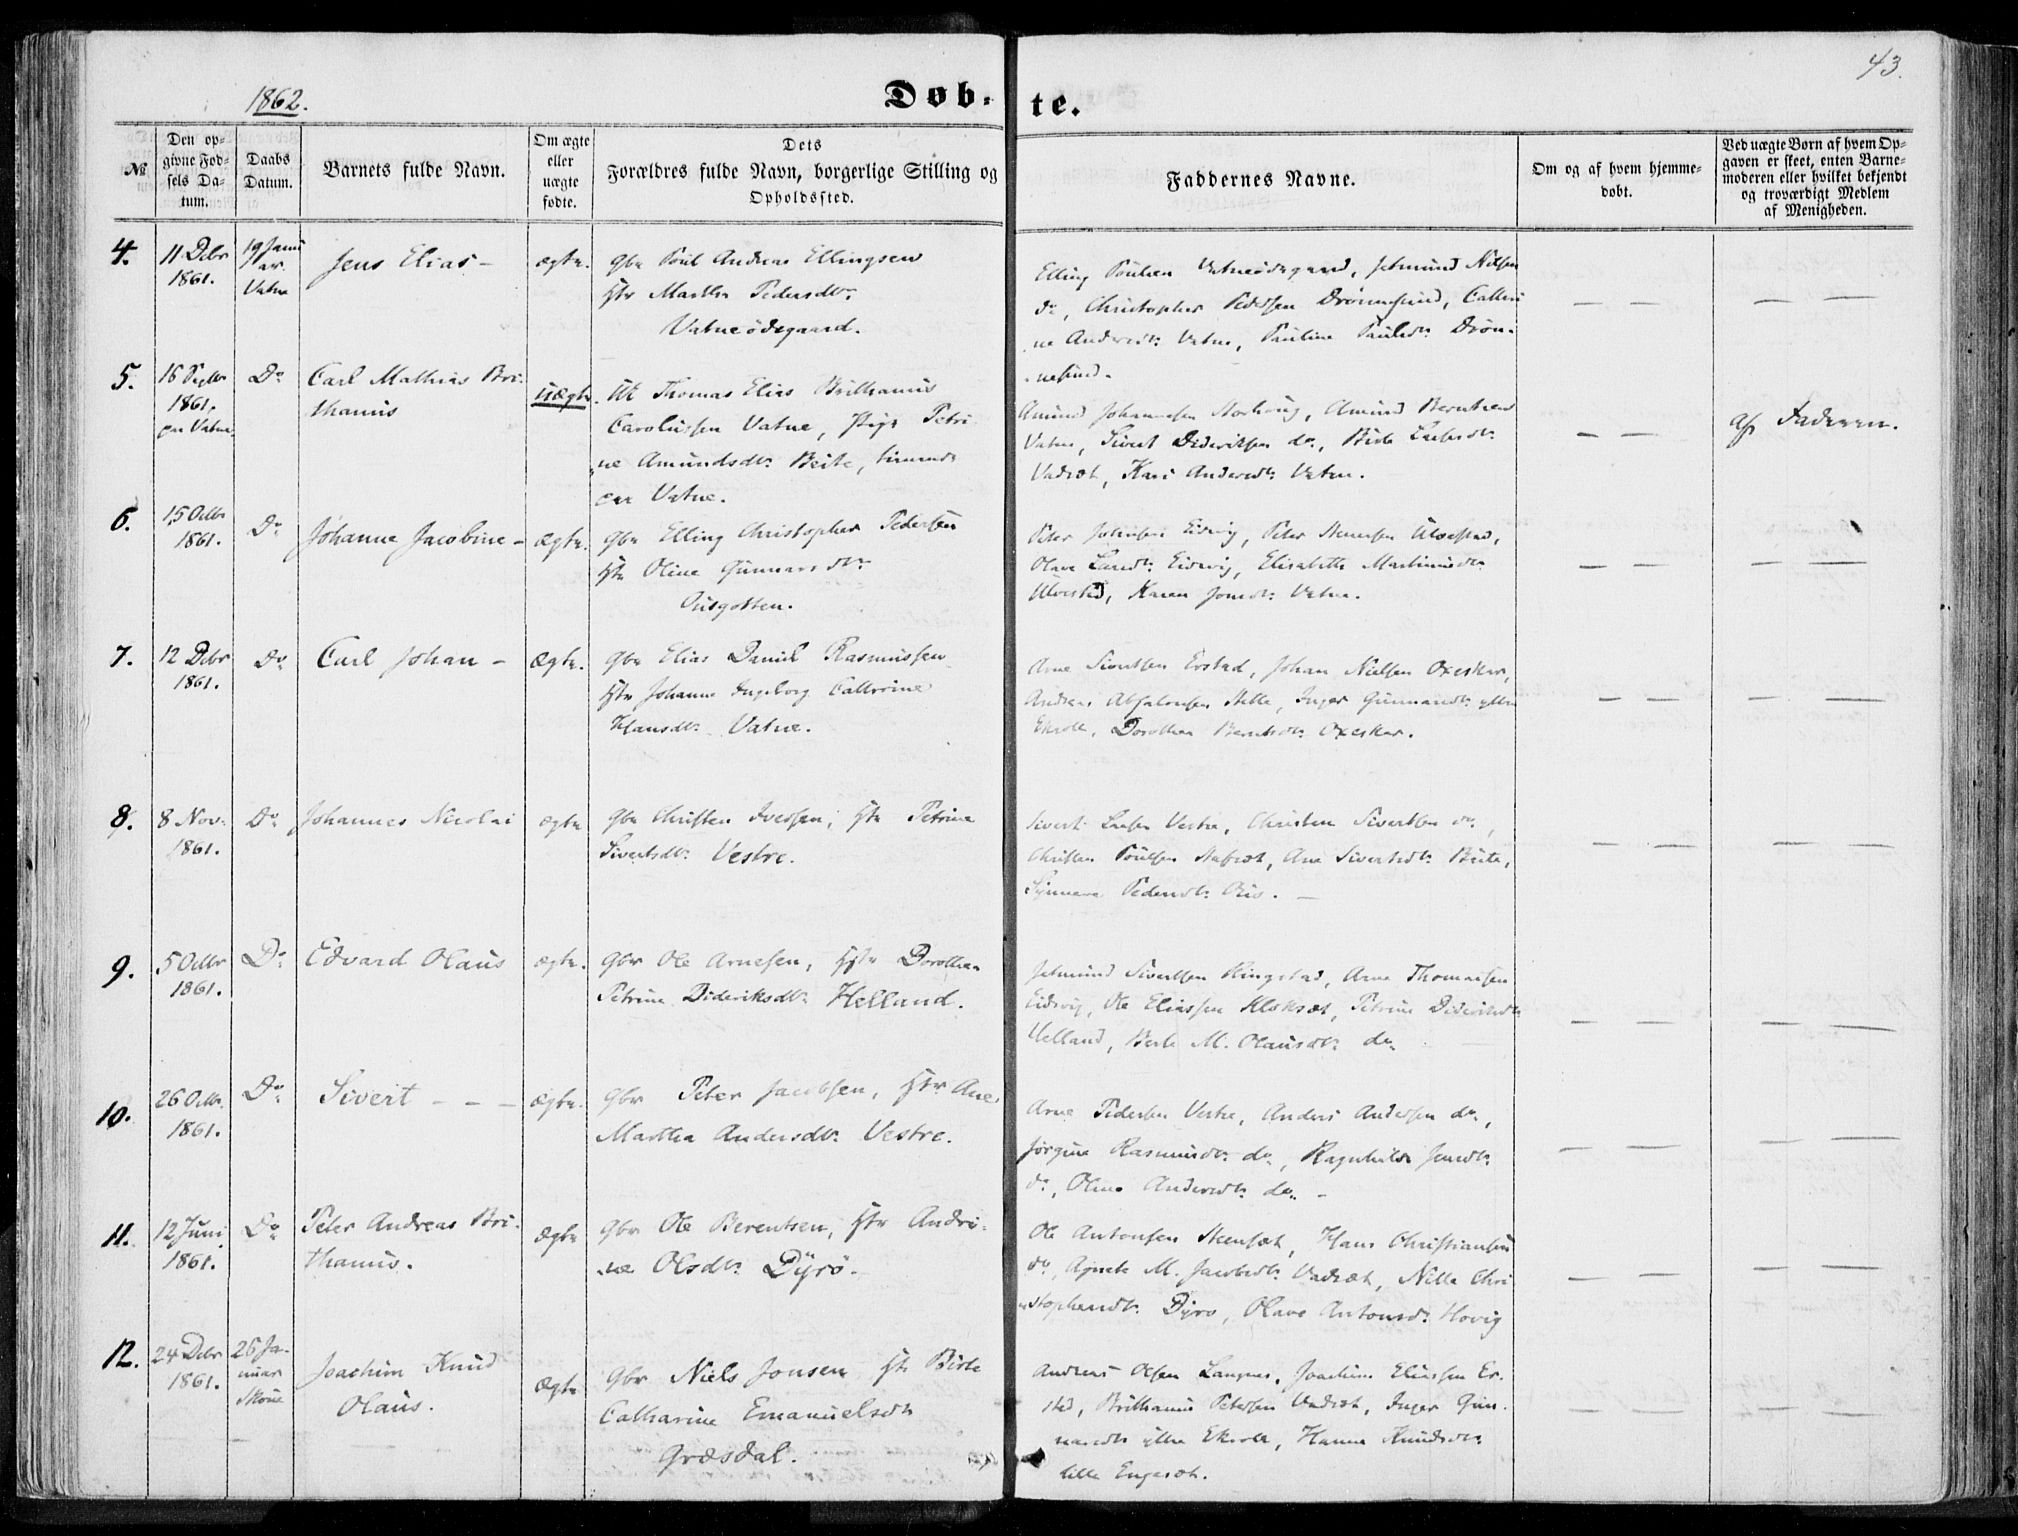 43.
1862.
Døb-te.
№
Den opgivne Fødsels Datum.
Daabs Datum.
Barnets fulde Navn.
Om ægte eller uægte fødte.
Dets Forældres fulde Navn, borgerlige Stilling og Opholdssted.
Faddernes Navne.
Om og af hvem hjemmedøbt.
Ved uægte Børn af hvem Opgaven er skeet, enten Barnemoderen eller hvilket bekjendt og troværdigt Medlem af Menigheden.
4.
11 Debr
1861.
19 Janu
ar.
Vatne
Jens Elias –
ægte.
Gbr Poul Andreas Ellingsen
Hstr Marthe Pedersdtr
Vatneødegaard.
Elling Poulsen Vatneødegaard, Jetmund Nilsen
do, Christopher Pedersen Drønnesund, Cathri
ne Andersdtr Vatne, Pauline Paulsdtr Drøn-
nesund.
5.
16 Septbr
1861,
paa Vatne
Do
Carl Mathias Bri-
thanus
uægte.
UK Thomas Elias Brithanus
Carolussen Vatne, Pige Petri
ne Amundsdtr Beite, tienende
paa Vatne.
Amund Johannesen, Amund Berntsen
Vatne, Sivert Dideriksen do, Birthe Larsdtr
Vadset, Kari Andersdtr Vatne.
af Faderen.
6.
15 Octbr
1861.
Do
Johanne Jacobine –
ægte.
Gbr Elling Christopher Pedersen
Hstr Oline Gunnarsdtr
Ousgotten.
Peter Johnsen Eidsvig, Peter Stenersen Ulvestad,
Olave Larsdtr Eidsvig, Elisabeth Martinusdtr
Ulvestad, Karen Jonsdtr Vatne.
7.
12 Debr
1861.
Do
Carl Johan –
ægte.
Gbr Elias Daniel Rasmussen
Hstr Johanne Ingeborg Cathrine
Hansdtr Vatne.
Arne Sivertsen Erstad, Johan Nielsen Oxeskar,
Andreas Absalonsen Helle, Inger Gunnarsdtr yttre
Ekrole, Dorothea Berntsdtr Oxeskar.
8.
8 Nov.
1861.
Do
Johannes Nicolai
ægte
Gbr Christen Iversen, Hstr Petrine
Sivertsdtr Vestre.
Sivert Larsen Vestre, Christen Sivertsen do,
Christen Poulsen, Ane Sivertsdtr Beite,
Synneve Pedersdtr.
9.
5 Octbr
1861.
Do
Edvard Olaus
ægte.
Gbr Ole Arnesen, Hstr Dorothea
Petrine Dideriksdtr Helland.
Jetmund Sivertsen Ringstad, Arne Thomassen
Eidsvig, Ole Eliassen Kloksæt, Petrine Dideriksdtr
Helland, Berte M. Olausdtr do
10.
26 Octbr.
1861.
Do
Sivert – – –
ægte.
Gbr Peter Jacobsen, Hstr Ane
Marthe Andersdtr Vestre.
Arne Pedersen Vestre, Anders Andersen do,
Jørgine Rasmusdtr do, Ragnhilde Jensdtr
do, Oline Andersdtr do –
11.
12 Juni
1861.
Do
Peter Andreas Bri-
thanus.
ægte
Gbr Ole Berentsen, Hstr Andri-
ne Olsdtr Dyrø.
Ole Antonsen Steensæt, Hans Christiansen
do, Agnete M. Jacobsdtr Vadset, Nille Chri
stophersdtr Dyrø, Olave Antonsdtr Hovig
12.
24 Debr
1861.
26 Ja-
nuar
Skoue
Joachim Knud
Olaus.
ægte
Gbr Niels Jonsen Hstr Birthe
Catharine Emanuelsdtr
Græsdal.
Andreas Olsen Langnes, Joachim Eliassen Er-
stad, Brithanus Petersen Vadset, Inger Gun-
narsdtr yttre Ekrole, Hanna Knudsdtr
lille Engeset.